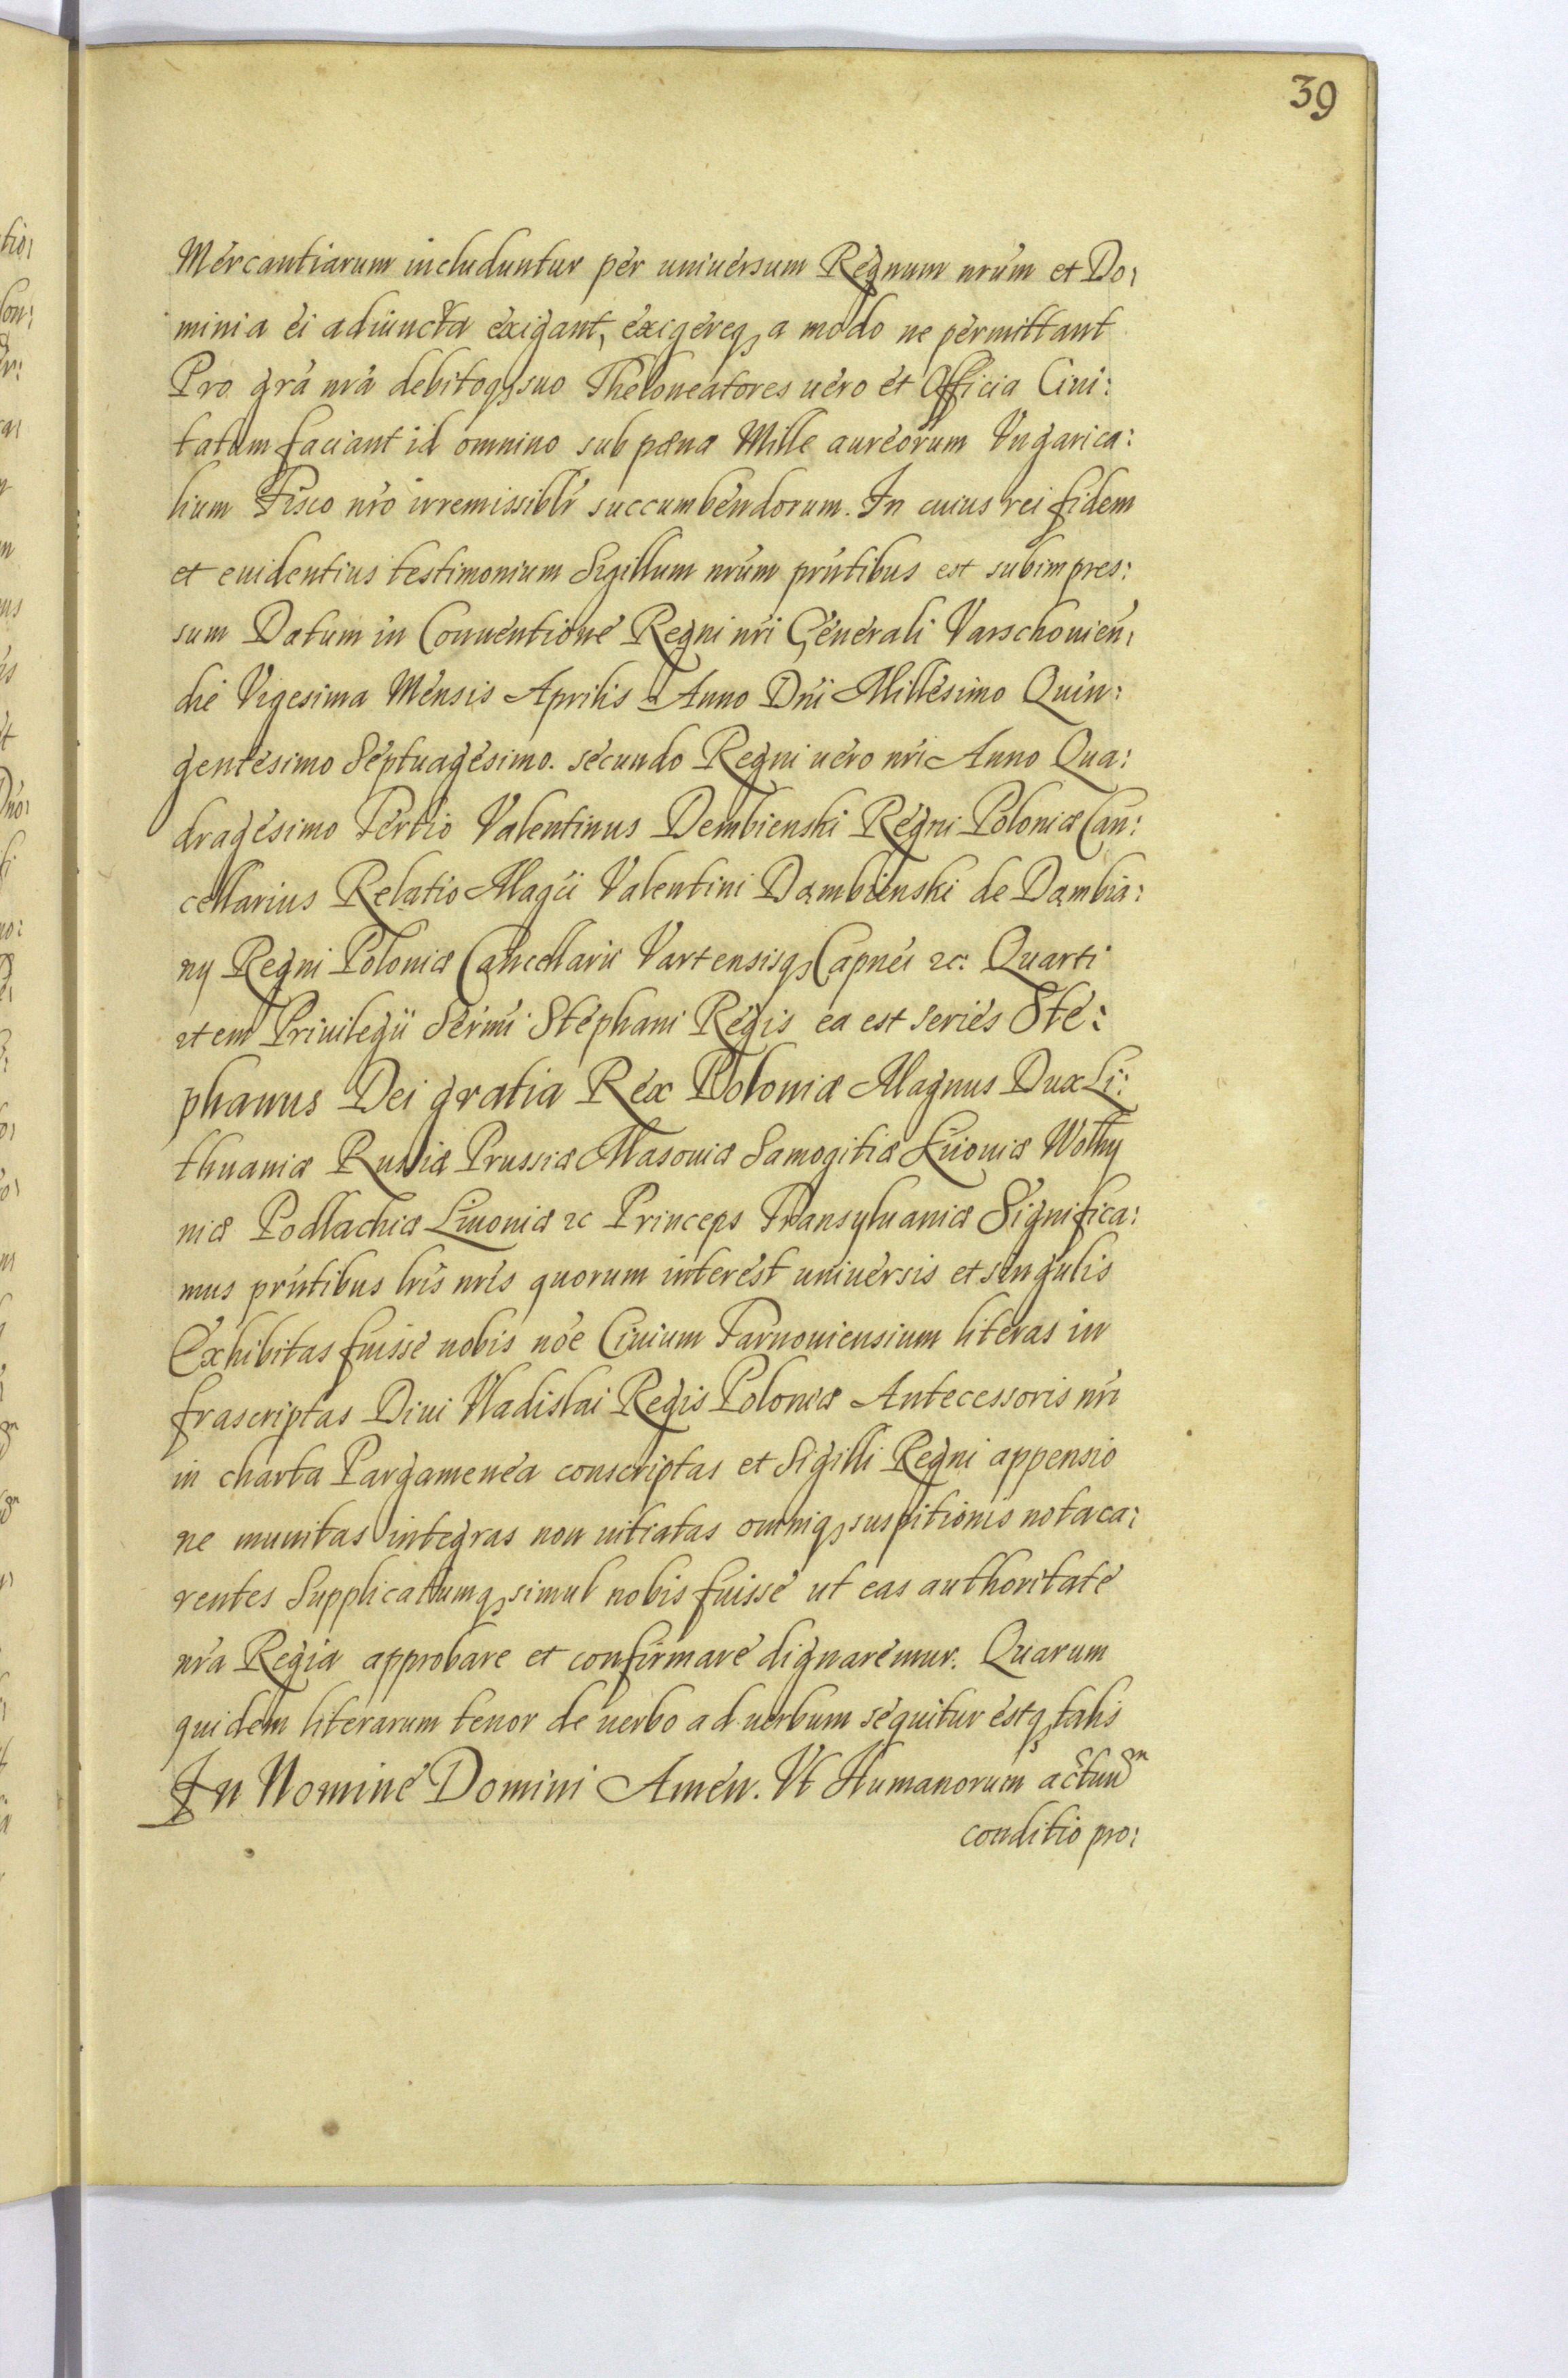 39
Mercantiarum includuntur per uniuersum Regnum nrum et Do,
minia ei adiuncta exigant, exigereq, a modo ne permittant
Pro gra nra debitoq, suo Theloneatores uero et Officia Ciui:
tatum faciant id omnino sub pæna Mille aureorum Vngarica:
lium Fisco nro irremissiblr succumbendorum. In cuius rei fidem
et euidentius testimonium Sigillum nrum prntibus est subimpres:
sum Datum in Conuentione Regni nri Generali Varschouien,
die Vigesima Mensis Aprilis Anno Dni Millesimo Quin:
gentesimo Septuagesimo. secundo Regni uero nri Anno Qua:
dragesimo Tertio Valentinus Dembienski Regni Poloniæ Can:
cellarius Relatio Magci Valentini Dąmbienski de Dąmbia:
ny Regni Poloniæ Cancellarii Vartensisq, Capnei &c: Quarti
item Priuilegii Sermi Stephani Regis ea est series Ste:
phanus Dei gratia Rex Poloniæ Magnus Dux Li:
thuaniæ Russiæ Prussiæ Masouiæ Samogitiæ Kiiouiæ Wolhy
niæ Podlachiæ Liuoniæ &c Princeps Transyluaniæ Significa:
mus prntibus lris nris quorum interest uniuersis et singulis
Exhibitas fuisse nobis noe Ciuium Tarnouiensium literas in
frascriptas Diui Vladislai Regis Poloniæ Antecessoris nri
in charta Pargamenea conscriptas et Sigilli Regni appensio
ne munitas integras non uitiatas omniq, suspitionis nota ca:
rentes Supplicatumq, simul nobis fuisse ut eas authoritate
nra Regia approbare et confirmare dignaremur. Quarum
quidem literarum tenor de uerbo ad uerbum sequitur estq, talis
In Nomine Domini Amen. Vt Humanorum actuum
conditio pro: